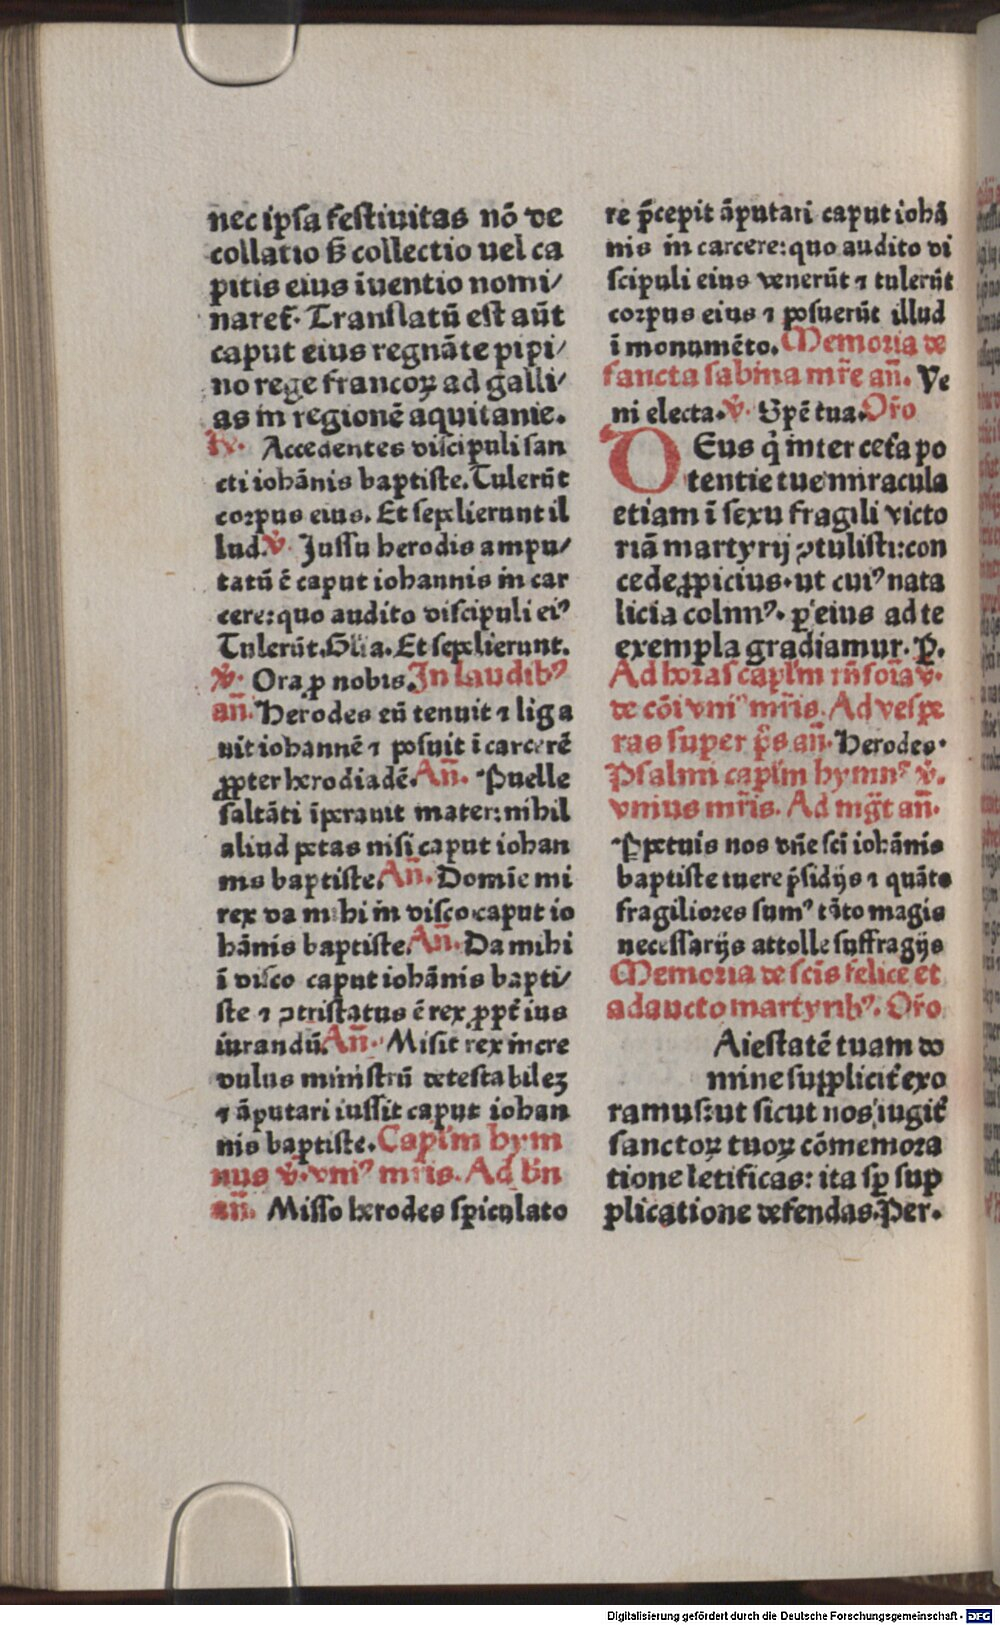 nec ipsa festiuitas nō de
collatio ß collectio uel ca
pitis eius īuentio nomi/
naret᷑. Tranſlatū eſt aūt
caput eius regnāte pipi/
no rege francoꝝ ad galli/
as in regionē aquitanie.
Rꝰ. Accedentes diſcipuli ſan
cti iohānis baptiſte. Tulerūt
corpus eius. Et ſepelierunt il
lud. v̓. Juſſu herodis ampu/
tatū ē caput iohannis in car
cere: quo audito diſcipuli eiꝰ
Tulerūt. Glīa. Et ſepelierunt.
v̓. Ora ꝓ nobis. In laudibꝰ
an̄. Herodes eñ tenuit ⁊ liga
uit iohannē ⁊ poſuit ī carcerē
ꝓpter herodiadē. An̄. Puelle
ſaltāti īperauit mater: nihil
aliud petas niſi caput iohan
nis baptiſte. An̄. Domīe mi
rex da mihi in diſco caput io
hānis baptiſte. An̄. Da mihi
ī diſco caput iohānis bapti/
ſte ⁊ ꝯtriſtatus ē rex ꝓpt᷑ ius
iurandū. An̄. Miſit rex incre
dulus miniſtrū deteſtabilez
⁊ āputari iuſſit caput iohan
nis baptiſte. Capl̄m hym
nus v̓. vniꝰ mr̄is. Ad bn̄
an̄. Miſſo herodes ſpiculato
re p̄cepit āputari caput iohā
nis in carcere: quo audito di
ſcipuli eius venerūt ⁊ tulerūt
corpus eius ⁊ poſuerūt illud
ī monumēto. Memoria de
ſancta ſabina mr̄e an̄. Ve
ni electa. v̓. Spē tua. Or̄o
DEus q̓ inter cet᷑a po
tentie tue miracula
etiam ī ſexu fragili victo
riā martyrij ꝯtuliſti: con
cede ꝓpicius. ut cuiꝰ nata
licia colimꝰ. p̲ eius ad te
exempla gradiamur. P̲.
Ad horas capl̄m rn̄ſoria v̓.
de cōi vniꝰ mr̄is. Ad veſpe
ras ſuper p̄s an̄. Herodes.
Pſalmi capl̄m hymnꝰ v̓.
vnius mr̄is. Ad mḡt an̄.
P̲petuis nos dn̄e ſci iohānis
baptiſte tuere p̄ſidijs ⁊ quāto
fragiliores ſumꝰ tāto magis
neceſſarijs attolle ſuffragijs
Memoria de ſcis felice et
adaucto martyribꝰ. Or̄o
Aieſtatē tuam do
mine ſupplicit᷑ exo
ramus: ut ſicut nos iugit᷑
ſanctoꝝ tuoꝝ cōmemora
tione letificas: ita ſp̲ ſup
plicatione defendas. Per.
Digitalisierung gefördert durch die Deutsche Forschungsgemeinschaft - DFG